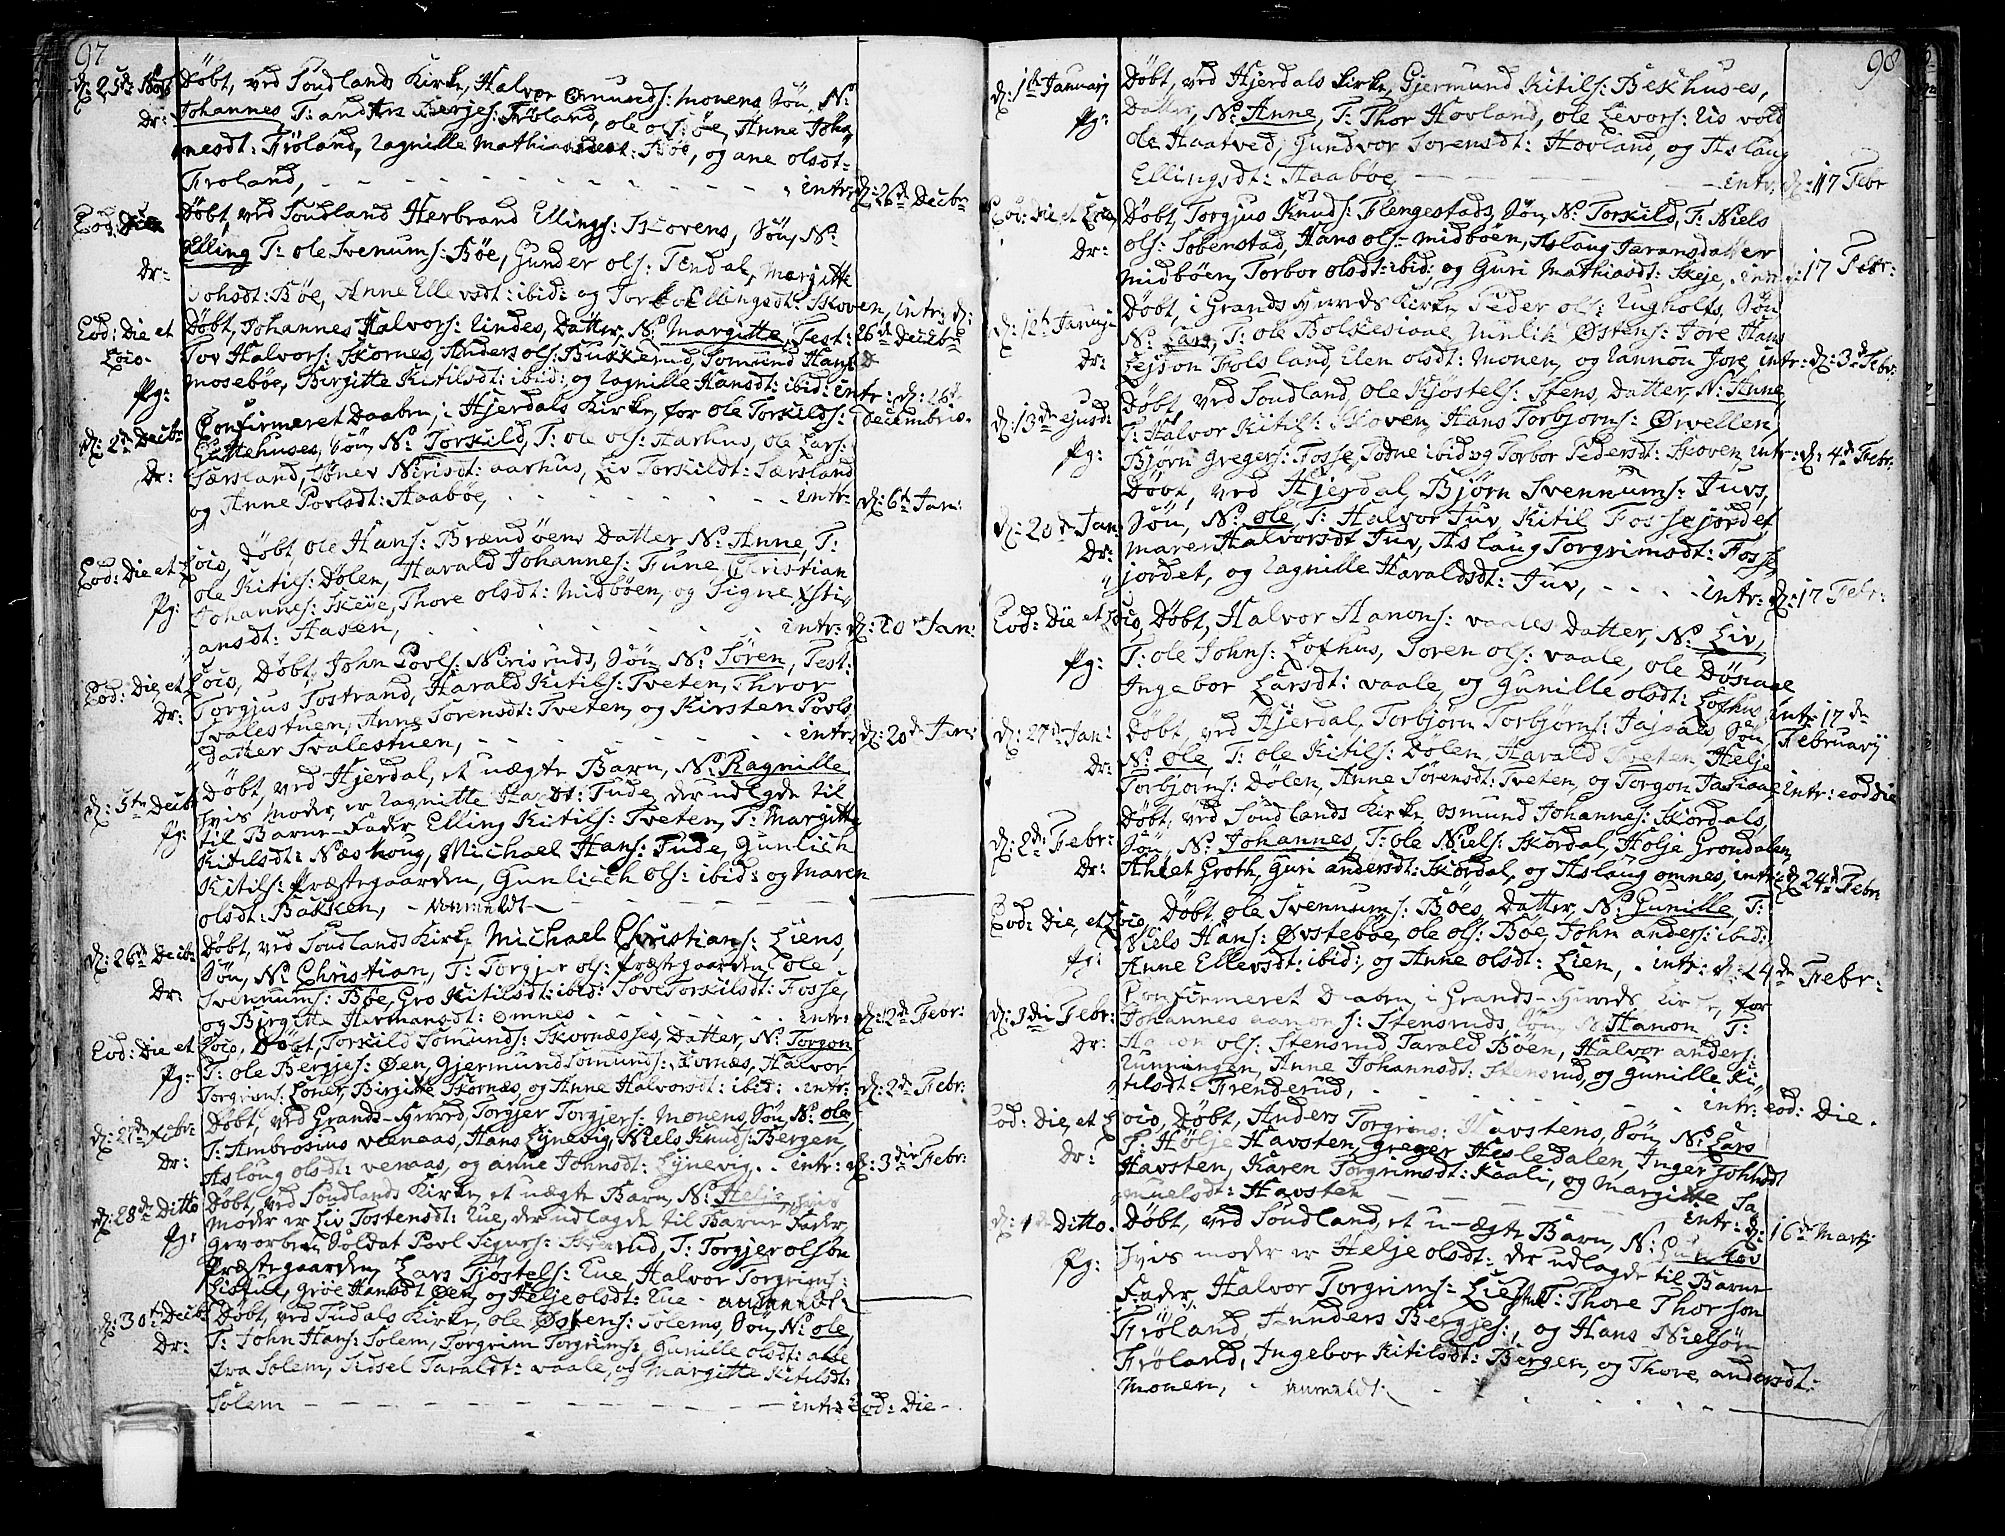 97
d: 25de Novb Døbt, ved Soudlands Kirke, Halvor Omunds: Monens Søn, N:
Dr: Johannes T: anders Berjes: Frøland, ole ols: øe, Anne Johan
nesdt: Frøland, Ragnille Mathiasdt: Bøe, og ane olsdt-
Froland, intr: d: 26de Decbr
Eod: Die Døbt, ved Soudland Herbrand Ellings: Skovens, Søn, N:
Dr: Elling T: ole Svenums: Bøe, Gunder ols: Tindal, Margitte
Johsdt: Bøe, Anne Ellevsdt: ibid: og Torbor Ellingsdt: Skoven, intr: d:
Eod: Die et Døbt, Johannes Halvors: Lindes, Datter, N: Margitte, Test: 26de Decbr
Loco- Tov Halvors: Skornes, Anders ols: Bukkerud, Somund Hans
Pg: mosebøe, Birgitte Kitilsdt: ibid: og Ragnille Hansdt: ibid: intr: d: 26de
d: 2de Decbr Confirmeret Daaben, i Hjerdals Kirke, for ole Torkilds: Decembris.
huses, Søn, N: Torskild, T: ole ols: Aarhus, ole Lars:
Dr: Særsland, Søren Nirisdt: aarhus, Liv Torskildt: Særsland
og Anne Povlsdt: Haabøe, intr: d: 6te Jan:
Eod: Die et Loco, Døbt ole Hans: Brændøens Datter N: Anne, T:
ole Kitils: Dølen, Harald Johannes: Fune Christian
Pg: Johannes: Skeje, Thore olsdt: Midbøen, og Signe Xsti,
ansdt: Hasen, intr: d: 20de Jan:
Eod: Die, et Loco, Døbt, John Povls: Nirisruds, Søn, N: Søren, Test:
Dr: Torgjus Tostrand, Harald Kitils: Tveten, Thror
Svalestuen, Anne Sorensdt: Tveten, og Kirsten Povls
Datter Svalestuen, intr: d: 20de Jan:
d: 5te Decbr Døbt, ved Hjerdal, et uægte Barn, N: Ragnille
hvis Moder er Ragnille Hansdt: Tude, der udlagde til
Pg: til Barne-Fader Elling Kitils: Tveten, T: Margitte
Kitilsdt: Næskoug, Michael Hans: Tude, Gunlich
Kitils: Præstegaarden, Gunlich ols: ibid: og Maren
olsdt: Bakken, - anmeldt-
d: 26de Decbr Døbt, ved Soudlands Kirke Michael Christians: Liens,
Søn, N: Christian, T: Torgjer ols: Præstegaarden, ole
Dr: Svennums: Bøe, Gro Kitilsdt: ibid: Tove Torskilsdt: Fosse,
og Birgitte Hermansdt: omnes intr: d: 2de Febr:
Eod: Die et Loco, Døbt, Torkild Somunds: Skornæsses, Datter, N: Torgon
Pg: T: ole Bergjes: Øen, Gjermund Somunds: Skornæs, Halvor
Torgrims: Lønet, Birgitte Skornæs og Anne Halvorsdt: ibid: intr: d: 2de Febr:
d: 27de Decbr: Døbt, ved Grands-Herred, Torgjer Torgjers: Monens, Søn, N: ole,
Dr: T: Ambrosius venaas, Hans Lynevig, Niels Knuds: Bergen,
Aslaug olsdt: venaas, og anne Johnsdt: Lynevig. intr: d: 3die Febr:
d: 28de Ditto Døbt, ved Soudlands Kirke, et uægte Barn, N: Helje, hvis
Pg: Moder er Liv Tostensdt: Lue, der udlagde til Barne Fader,
Gevorben Soldat Povl Sigurs: T: Torgjer olsøn
Præstegaarden, Lars Tjøstels: Lue, Halvor Torgrims:
Lisful, Grøe Hansdt Øen og Helje olsdt: Lue - anmeldt:
d: 30te Decbr Døbt, ved Tudals Kirke, ole Østens: Solems, Søn, N: ole,
Dr: T: John Hans: Solem, Torgrim Torgrims: Gunille olsdt: alle
fra Solem, Sidsel Taraldt: vaale, og Margitte Kitilsdt:
Solem intr: Eod: Die.
98
d: 1te Januarij Døbt, ved Hjerdals Kirke, Gjermund Kitils: Bekhuses,
Pg: Datter, N: Anne, T: Thor Hovland, ole Levors: Lis vold
ole Haatved, Gundvor Sorensdt: Hovland, og Aslaug
Ellingsdt: Haabøe intr: d: 17 Febr
Eod: die et Loco, Døbt, Torgjus Knuds: Flengestads, Søn N: Torskild, T: Niels
Dr: ols: Sobenstad, Hans ols: midbøen, Aslaug Taransdatter
midbøen, Torbor olsdt: ibid: og Guri Mathiasdt: Skeje, intr: d: 17 Febr:
d: 12te Januarij Døbt, i Grands Herreds Kirke, Peder ols: Rugholts, Søn
N: Lars, T: ole Bolkesiaae, Gunlik Østens: Jore Hans
Dr: Lejson Folsland, Elen olsdt: Monen, og Rannou Jore, intr: d: 3de Febr:
d: 13de ejusd: Døbt, ved Soudland, ole Kjøstels: Stens, Datter, N: Anne,
T: Halvor Kitils: Skoven, Hans Torbjorns: Ørvellen,
Pg: Bjørn Gregers: Fosse, Todne ibid: og Torbor Pedersdt: Skoven, intr: d: 4de Febr:
Døbt, ved Hjerdal, Bjørn Svennums: Juvs,
d: 20de Jan Søn, N: ole, T: Halvor Juv, Kitil Fossejordet,
Dr: maren Halvorsdt Juv, Aslaug Torgrimsdt: Fosse,
jordet, og Ragnille Haraldsdt: Juv, intr: d: 17 Febr:
Eod: Die et Loco, Døbt, Halvor Aanons: vaales Datter, N: Liv,
Pg: T: ole Johns: Lofhus, Soren ols: vaale, ole Døsiaae
Ingebor Larsdt: vaale, og Gunille olsdt: Lofhus, intr: 17de
d: 27de Jan: Døbt, ved Hjerdal, Torbjørn Torbjørns: Søn, Februarij
Dr: N: ole, T: ole Kitils: Dølen, Harald Tveten, Helje
Torbjørns: Dølen, Anne Sørensdt: Tveten, og Torgon intr: eod die
Døbt, ved Soudlands Kirke, osmund Johannes: Skordals,
d: 2de Febr: Søn, N: Johannes, T: ole Niels: Skordal, Holje Grondalen,
Dr: Ahlet Groth, Guri andersdt: Skordal, og Aslaug omnes, intr: d: 24de Febr
Eod: Die, et Loco, Døbt, ole Svennums: Bøes, Datter, N: Gunille, T:
Pg: Niels Hans: Øvstebøe, ole ols: Bøe, John anders: ibid:
Anne Ellevsdt: ibid:, og Anne olsdt: Lien, intr: d: 24de Febr:
d: 3die Febr: Confirmeret Daaben, i Grands-Herreds Kirke, for
Johannes aanons: Stensruds, Søn, N: Aanon T:
Dr: Aanon ols: Stensrud Tarald Bøen, Halvor anders:
Runningen, Anne Johannsdt: Stensrud, og Gunille Ki,
tilsdt: Frenderud, intr: eod: Die.
Eod: Die, et Loco, Døbt, Anders Torgrims: Havstens, Søn, N: Lars
Dr: T: Hølje Havsten, greger Hesledalen, Inger Johnsdt
Havsten, Karen Torgrimsdt: Kaali, og Margitte Sa
muelsdt: Havsten intr: d: 16de Martj
d: 1de Ditto. Døbt, ved Soudland, et u-ægte Barn, N:
Pg: hvis moder er Helje olsdt: der udlagde til Barne
Fader Halvor Torgrims: T: Thore Thorson
Frøland, Bergjes:, og Hans Nielsøn
Frøland, Ingebor Kitilsdt: Bergen, og Thore andersdt:
Monen, - anmeldt: